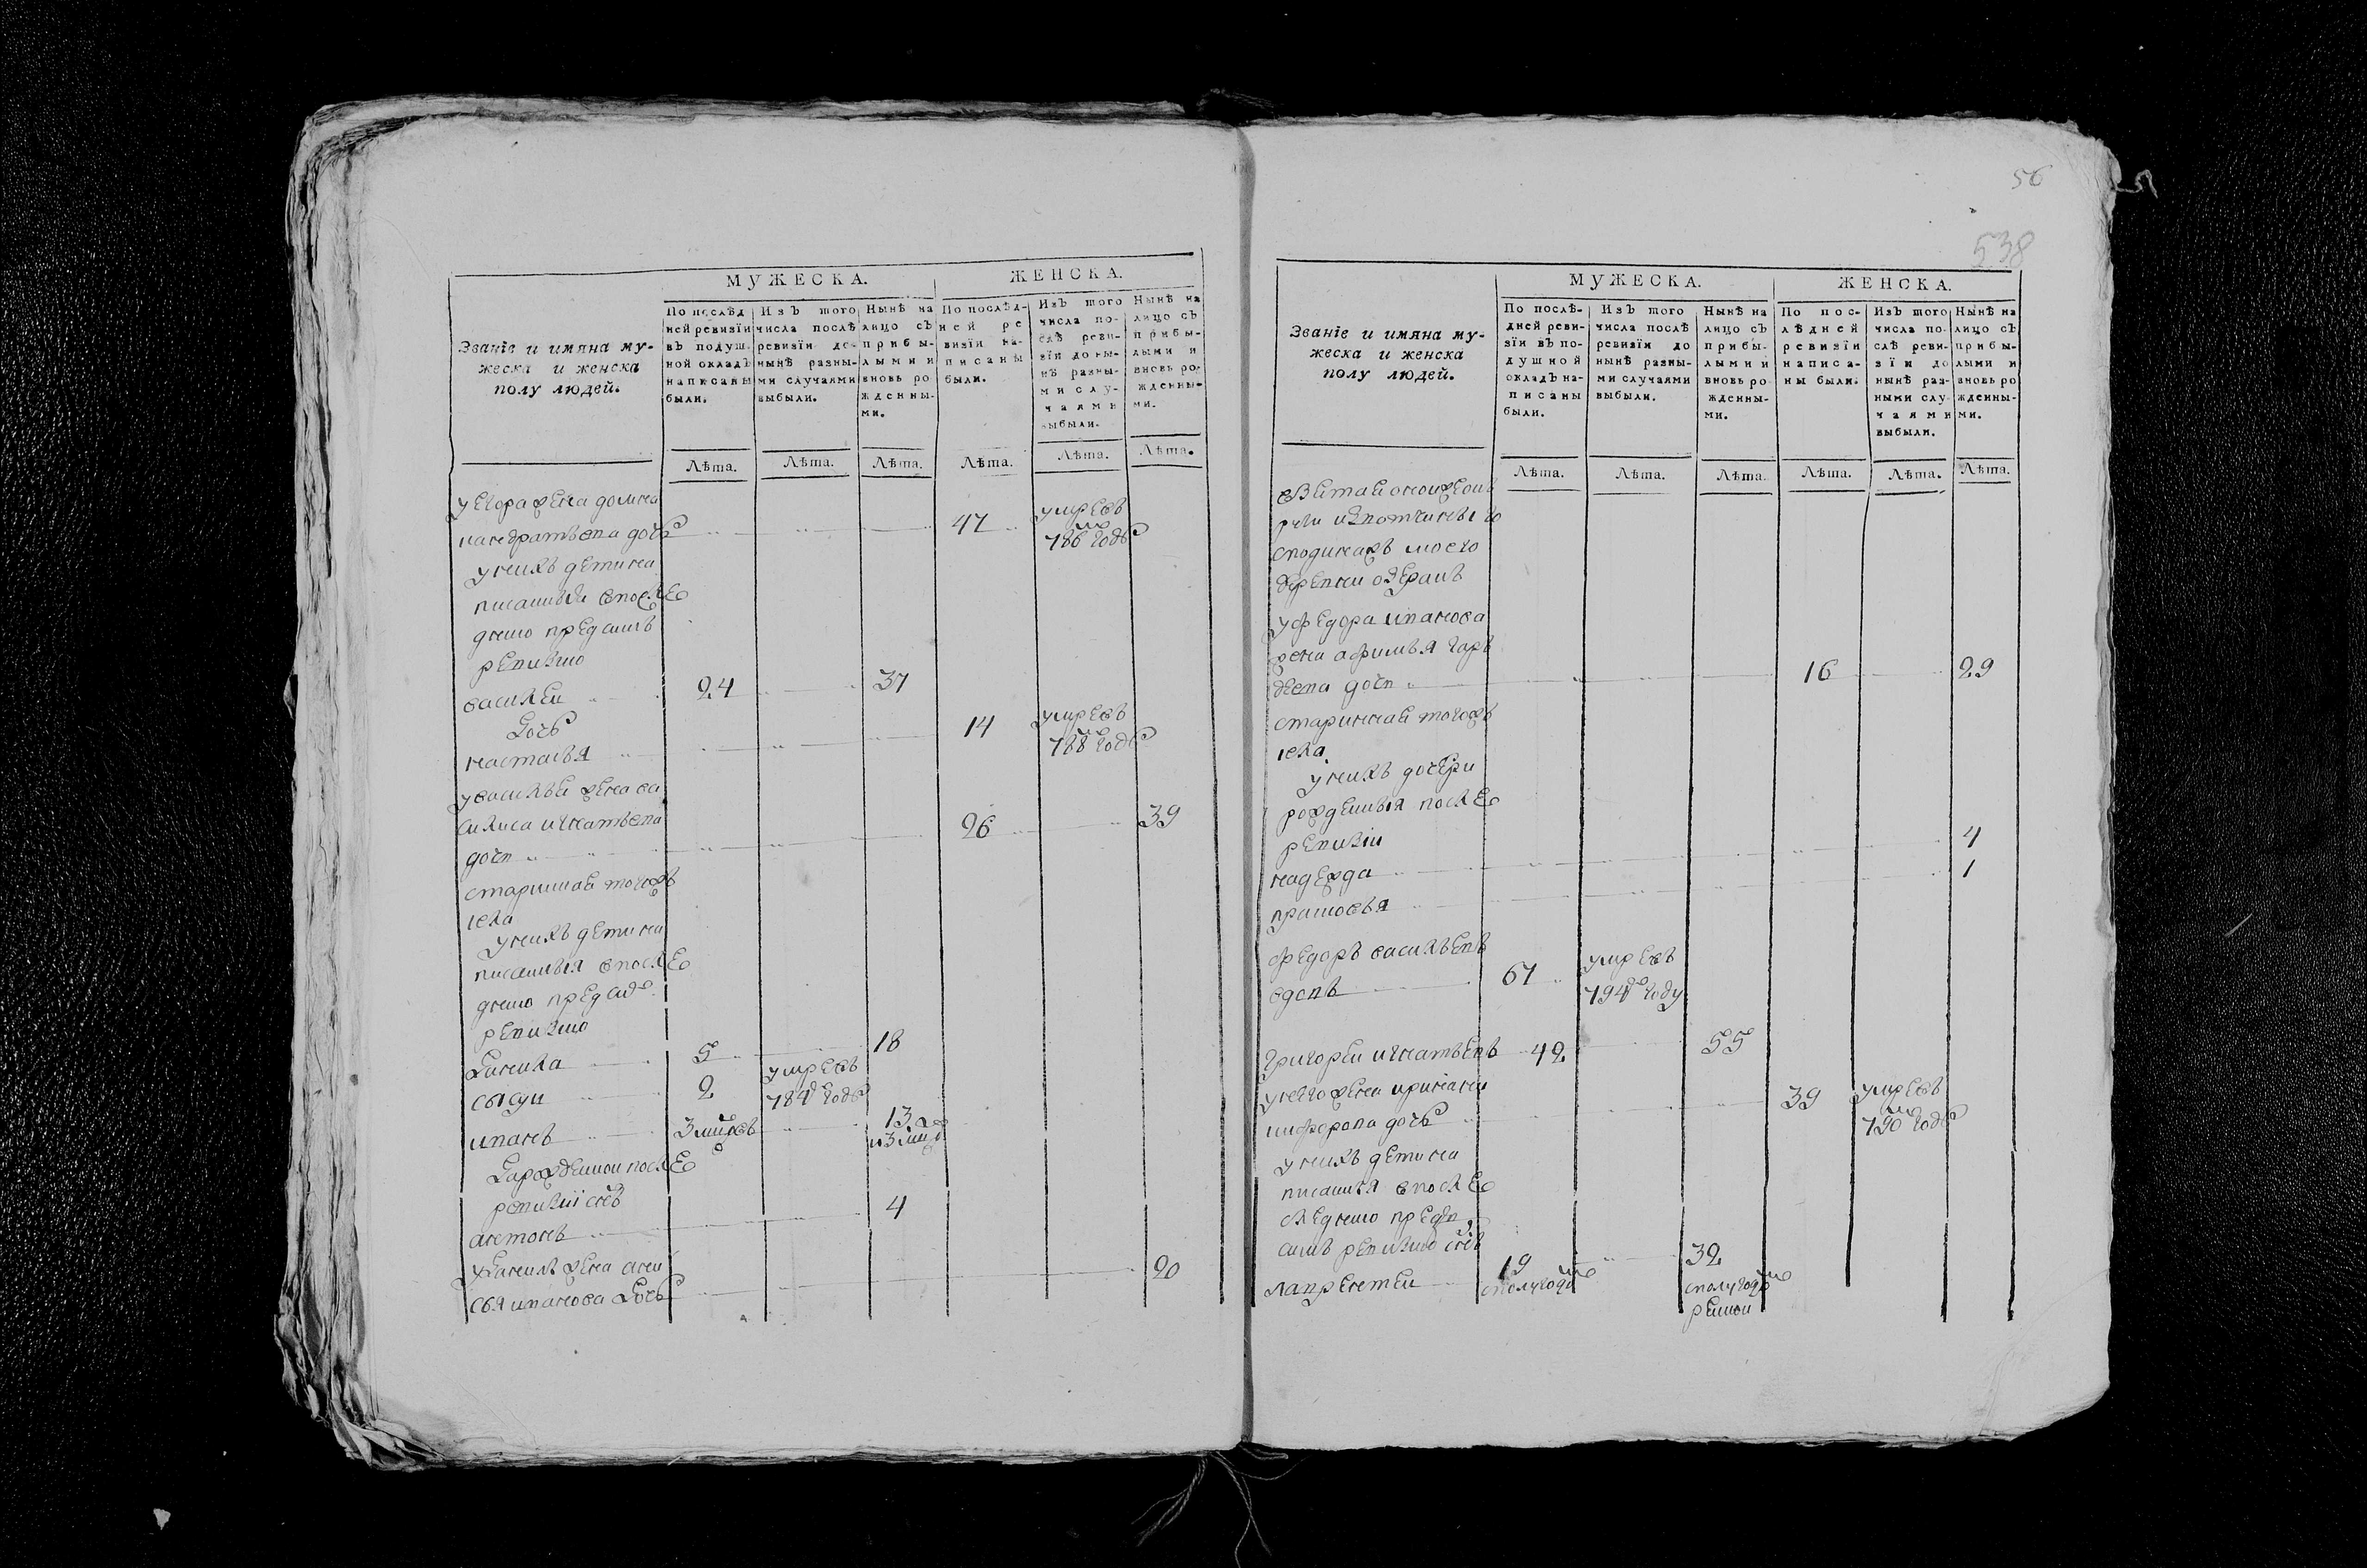 56
538
МУЖЕСКА.
ЖЕНСКА.
Званїе и имяна му-
жеска и женска
полу людей.
По послѣд
ней ревизїи
въ подуш
ной окладъ
написаны
были.
Изъ того
числа послѣ
ревизїи до
нынѣ разны-
ми случаями
выбыли.
Нынѣ на
лицо съ
прибы-
лыми и
вновь ро
жденны-
ми.
По послѣд-
ней ре
визїи на-
писаны
были.
Изъ того
числа по-
слѣ реви-
зїи до ны-
нѣ разны-
ми слу-
чаями
выбыли.
Нынѣ на
лицо съ
прибы-
лыми и
вновь ро-
жденны-
ми.
Лѣта. Лѣта. Лѣта. Лѣта. Лѣта. Лѣта.
у егора жена домна
кандратьева дочь 47 умревъ
786 годь
у нихъ дети на
писанныи впосле
днею пред симъ
ревизию
василеи 24 37
дочь
настасья 14 умревъ
788 годь
у василья жена ва
силиса игнатьева
доч 26 39
стариннаи тогожъ
села
у нихъ дети на
писанныя впосле
днею пред
ревизию
данила 5 18
сысуи 2 умревъ
784 годь
иванъ 3 13
и 3
зарожденнои после
ревизіи снъ
антонъ 4
у данилы жена ани
сья иванова дочь 20
МУЖЕСКА.
ЖЕНСКА.
Званїе и имяна му-
жеска и женска
полу людей.
По послѣ-
дней реви-
зїи въ по-
душной
окладъ на-
писаны
были.
Изъ того
числа послѣ
ревизїи до
нынѣ разны-
ми случаями
выбыли.
Нынѣ на
лицо съ
прибы-
лыми и
вновь ро-
жденны-
ми.
По пос-
лѣдней
ревизїи
написа-
ны были.
Изъ того
числа по-
слѣ реви-
зїи до
нынѣ раз-
ными слу-
чаями
выбыли.
Нынѣ на
лицо съ
прибы-
лыми и
вновь ро
жденны-
ми.
Лѣта. Лѣта. Лѣта. Лѣта. Лѣта. Лѣта.
сподинахъ моего
у федора иванова
жена афимья гарь
деева доч 16 29
стариннаи тогожъ
села
у нихъ дочери
рожденныя после
ревизіи
надежда 4
прасковья 1
федоръ васильевъ
вдовъ 67 умревъ
794 году
григореи игнатьевъ 42 55
у него жена
дочь 39 умревъ
790 годь
у нихъ дети на
писанныя впосле
днею
симъ ревизию снъ
лаврентеи 19 32
сполугоди сполугоди